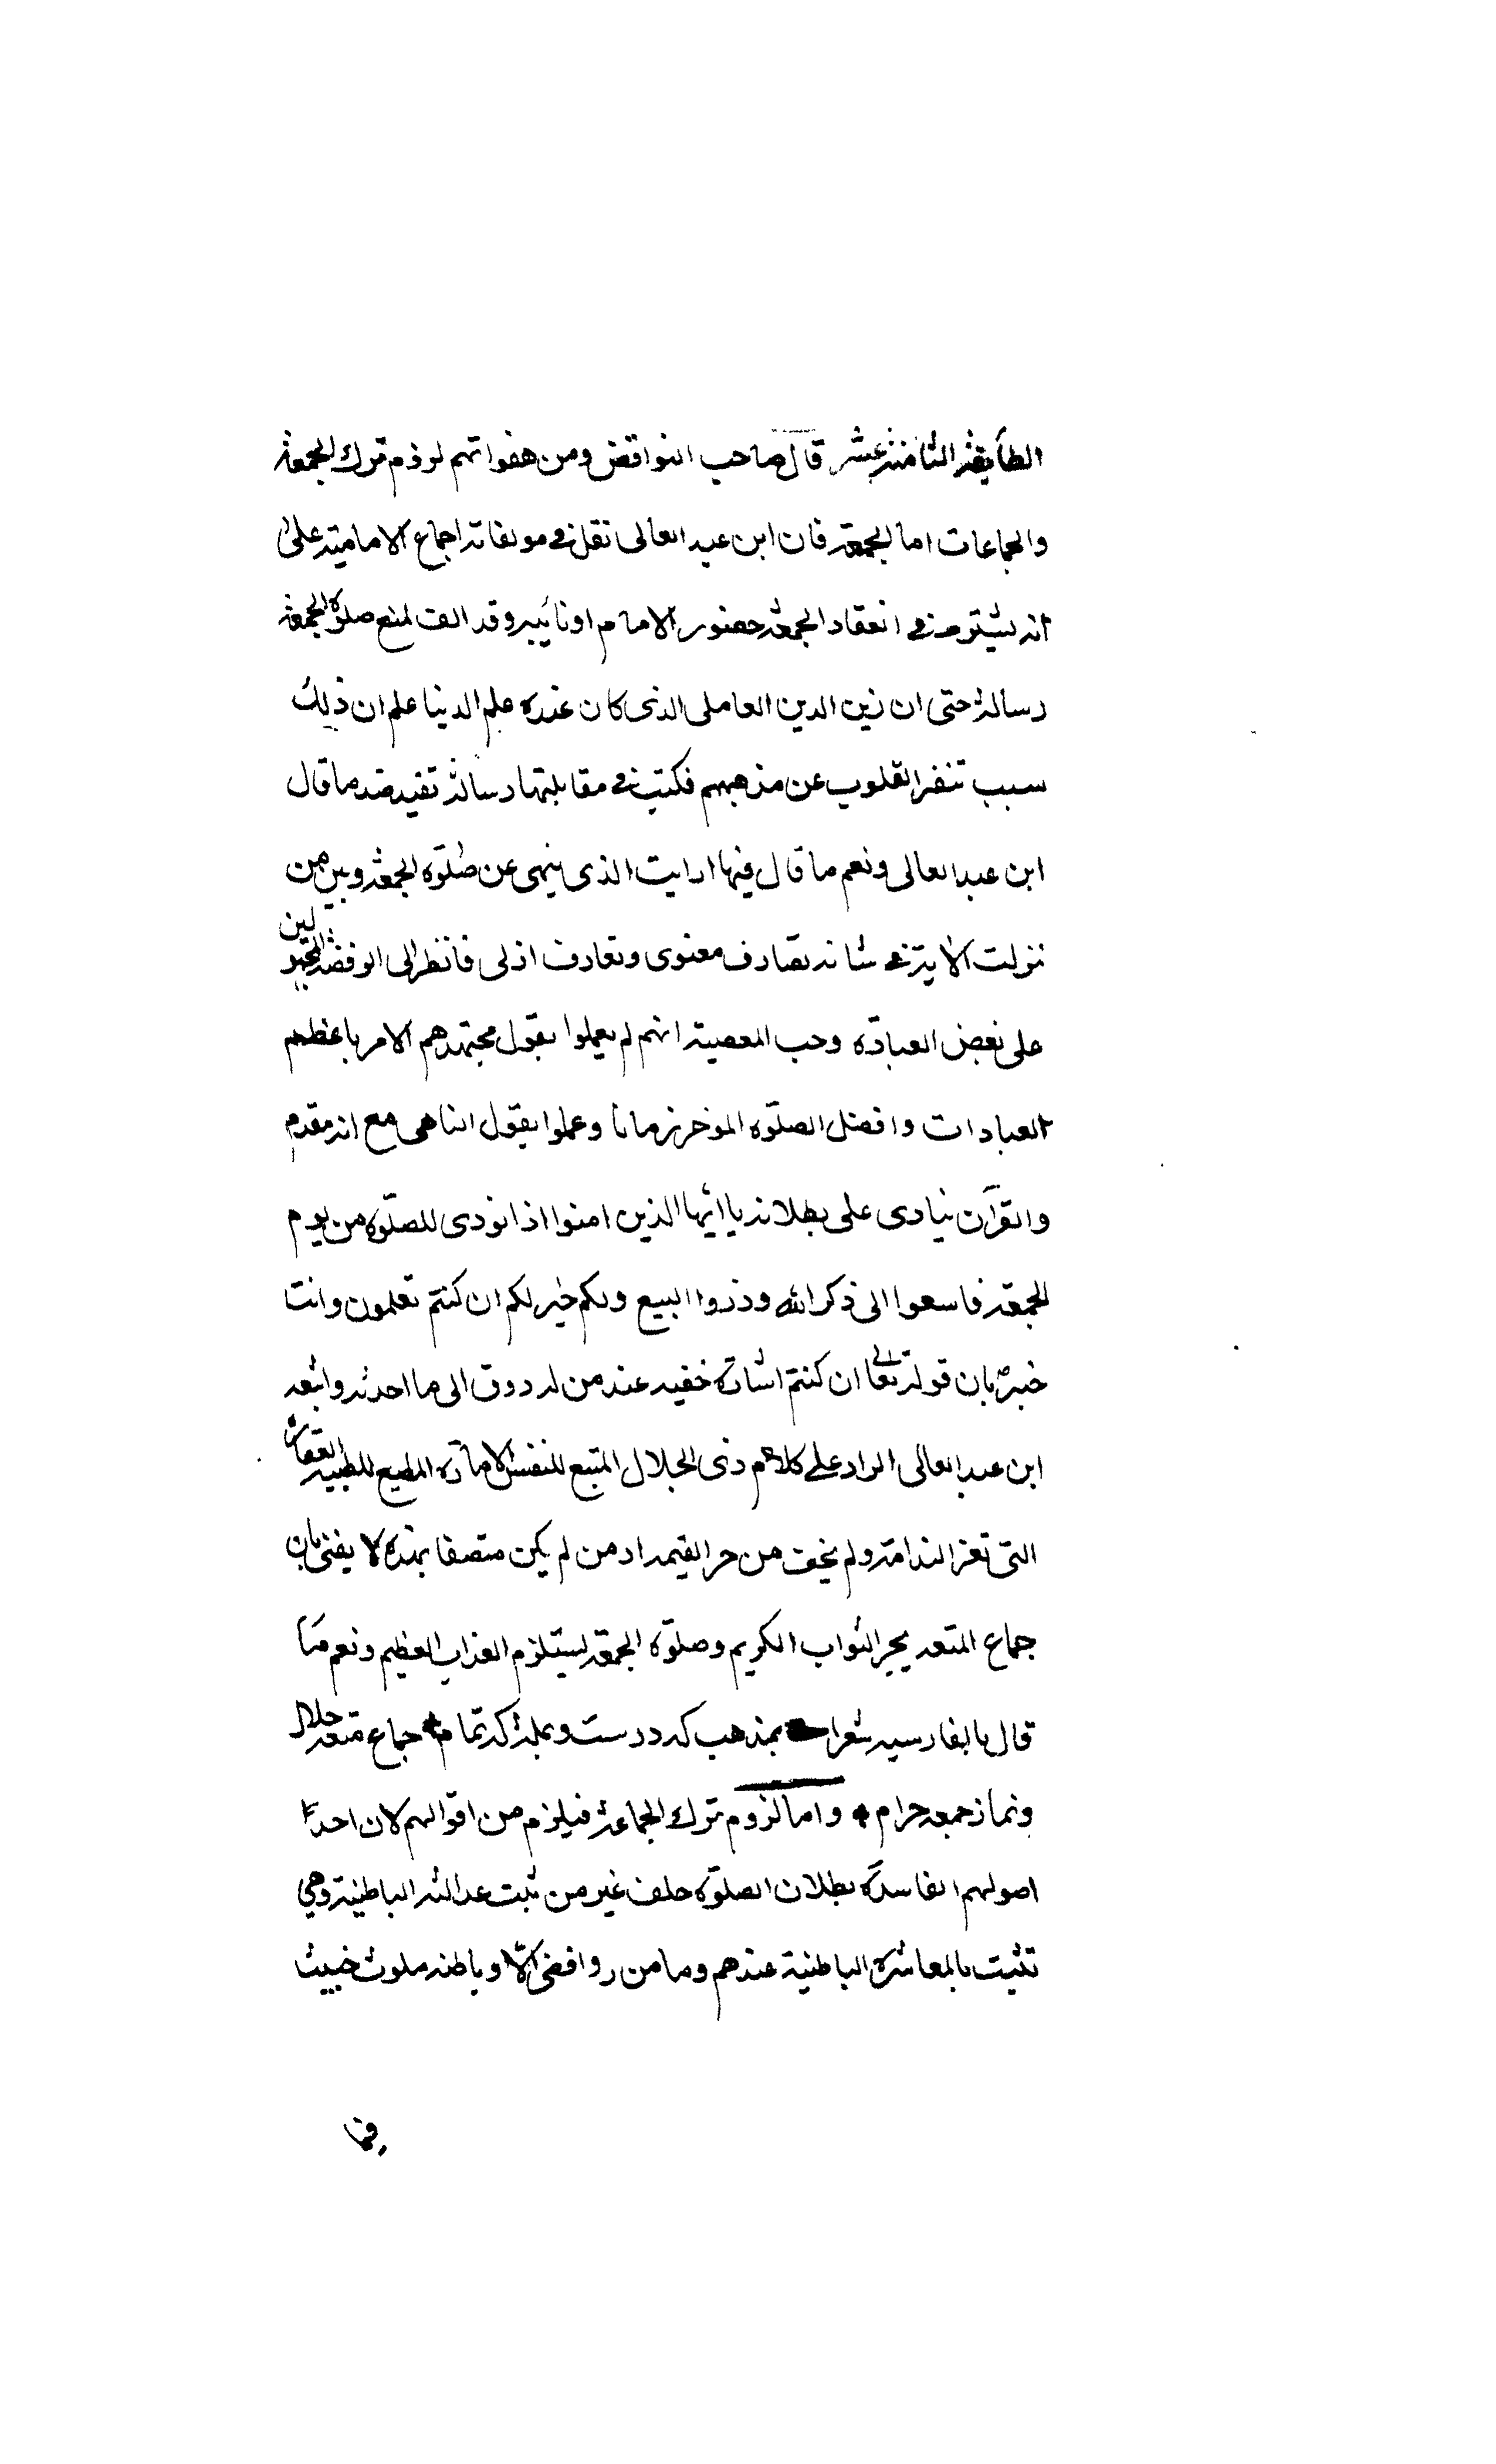 الطايفة الثامنة عشر قال صاحب النواقض ومن هفواتهم لزوم ترك الجمعة
والجماعات اما الجمعة فان ابن عبد العالى نقل في مولفاته اجماع الامامية على
انه يشترط في انعقاد الجمعة حضور الامام او نايبه وقد الف لمنع صلوة الجمعة
رسالة حتى ان زين الدين العاملى الذى كان عنده علم الدنيا علم ان ذلك
سبب تنفر القلوب عن مذهبهم فكتب في مقابلتها رسالة تفيد ضد ما قال
ابن عبد العالى ونعم ما قال فيها ارايت الذى ينهى عن صلوة الجمعة وبين من
نزلت الاية في شانه تصادف معنوى وتعارف ازلى فانظر الى الرفضة المجبولين
على بغض العبادة وحب المعصية انهم لم يعملوا بقول مجتهدهم الامر باعظم
العبادات وافضل الصلوة الموخر زمانا وعملوا بقول الناهى مع انه مقدم
والقرآن ينادى على بطلانه يا ايها الذين امنوا اذا نودى للصلوة من يوم
الجمعة فاسعوا الى ذكر الله وذروا البيع ولكم خير لكم ان كنتم تعلمون وانت
خبير بان قوله تعالى ان كنتم اشارة خفيه عند من له ذوق الى ما احدثه واتبعه
ابن عبد العالى الراد على كلام ذى الجلال المتبع للنفس الامارة المطيع للطبيعة
التى تعز الندامة ولم يخف من حر القيمه اذ من لم يكن متصفا بهذه لا يفتى بان
جماع المتعه يجر الثواب الكريم وصلوة الجمعة يستلزم العذاب العظيم ونعم ما
قال بالفارسيه شعرا بمذهب كه درست وبملة كه تمام جماع متعه حلال
ونماز جمعه حرام واما لزوم ترك الجماعة فيلزم من اقوالهم لان احد
اصولهم الفاسدة بطلان الصلوة خلف غير من ثبت عدالته الباطنية وهي
تثبت بالمعاشرة الباطنية عندهم وما من روافضى الا وباطنه ملوث خبيث
فما